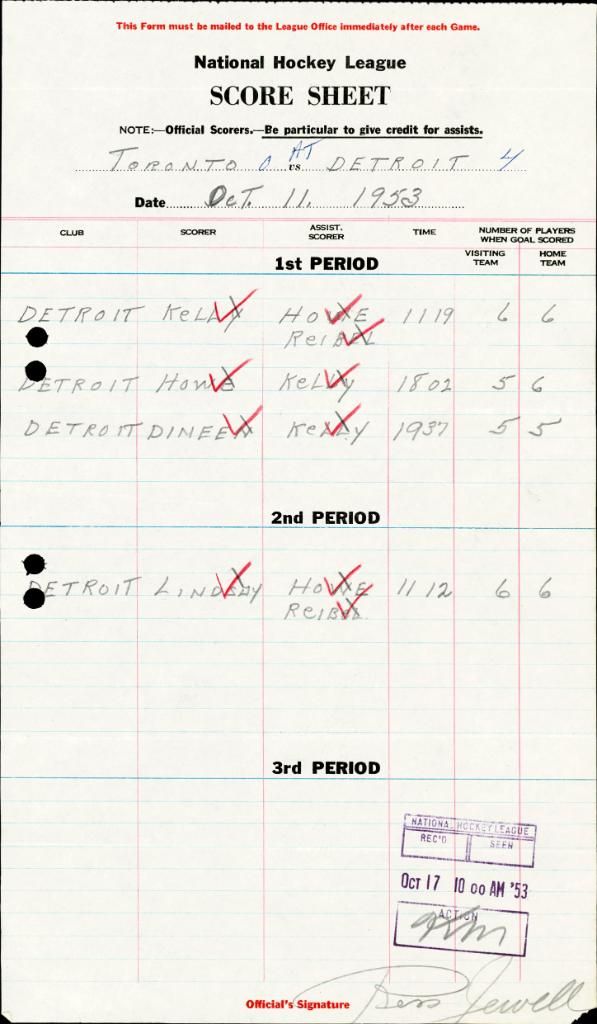 This Form must be mailed to the League Office immediately after each Game.
National Hockey League
SCORE SHEET
NOTE:—Official Scorers.—Be particular to give credit for assists.
TORONTO 0 AT vs DETROIT 4
Date OCT. 11. 1953
CLUB SCORER ASSIST. SCORER TIME NUMBER OF PLAYERS WHEN GOAL SCORED
VISITING TEAM HOME TEAM
1st PERIOD
DETROIT KELLY HOWE 1119 6 6
REIBEL
DETROIT HOWE KELLY 1802 5 6
DETROIT DINEEN KELLY 1937 5 5
2nd PERIOD
DETROIT LINDSAY HOWE 1112 6 6
REIBEL
3rd PERIOD
NATIONAL HOCKEY LEAGUE
REC'D SEEN
OCT 17 10 00 AM '53
ACTION
Official's Signature Jewell